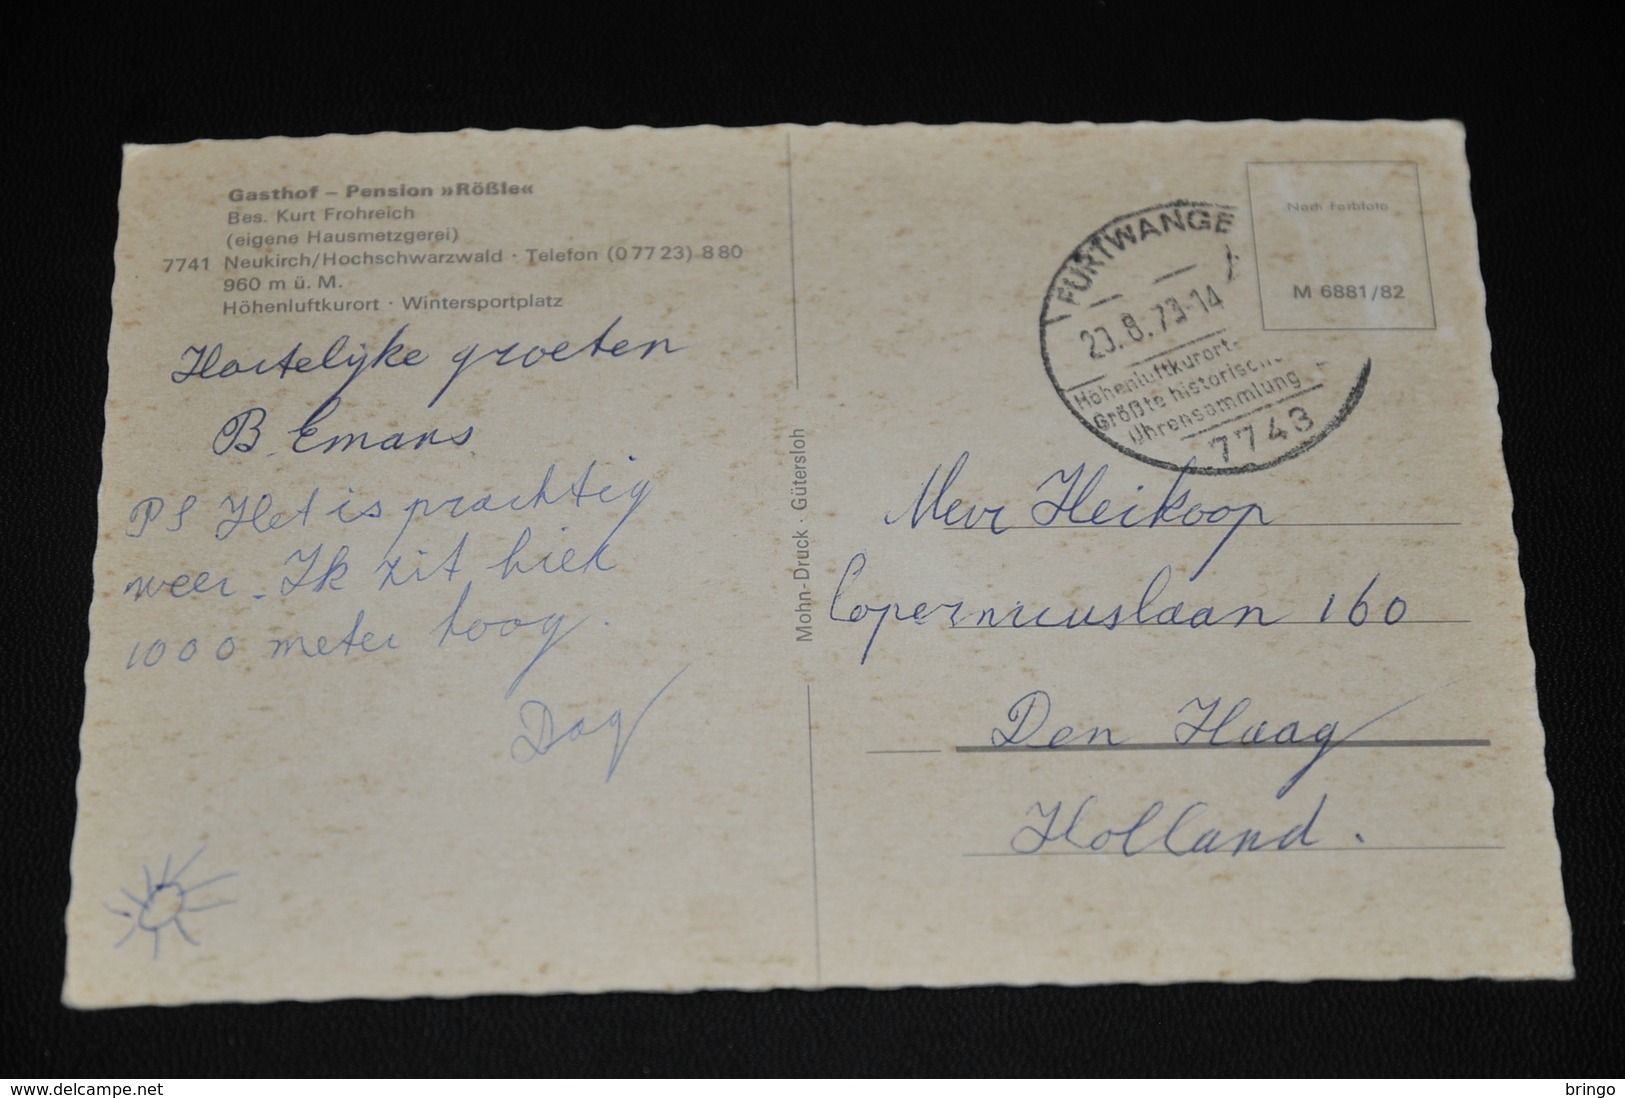 Gasthof – Pension »Rößle«
Bes. Kurt Frohreich
(eigene Hausmetzgerei)
7741 Neukirch/Hochschwarzwald · Telefon (0 77 23) 8 80
960 m ü. M.
Höhenluftkurort · Wintersportplatz
Hartelijke groeten
B. Emans.
PS Het is prachtig
weer. Ik zit hier
1000 meter hoog.
Dag
Mohn-Druck · Gütersloh
Nach Farbfoto
M 6881/82
FURTWANGE
23.8.73-14
Höhenluftkurort-
Größte historische
Uhrensammlung
7743
Mevr Heikoop
Copernicuslaan 160
Den Haag
Holland.
www.delcampe.net
bringo